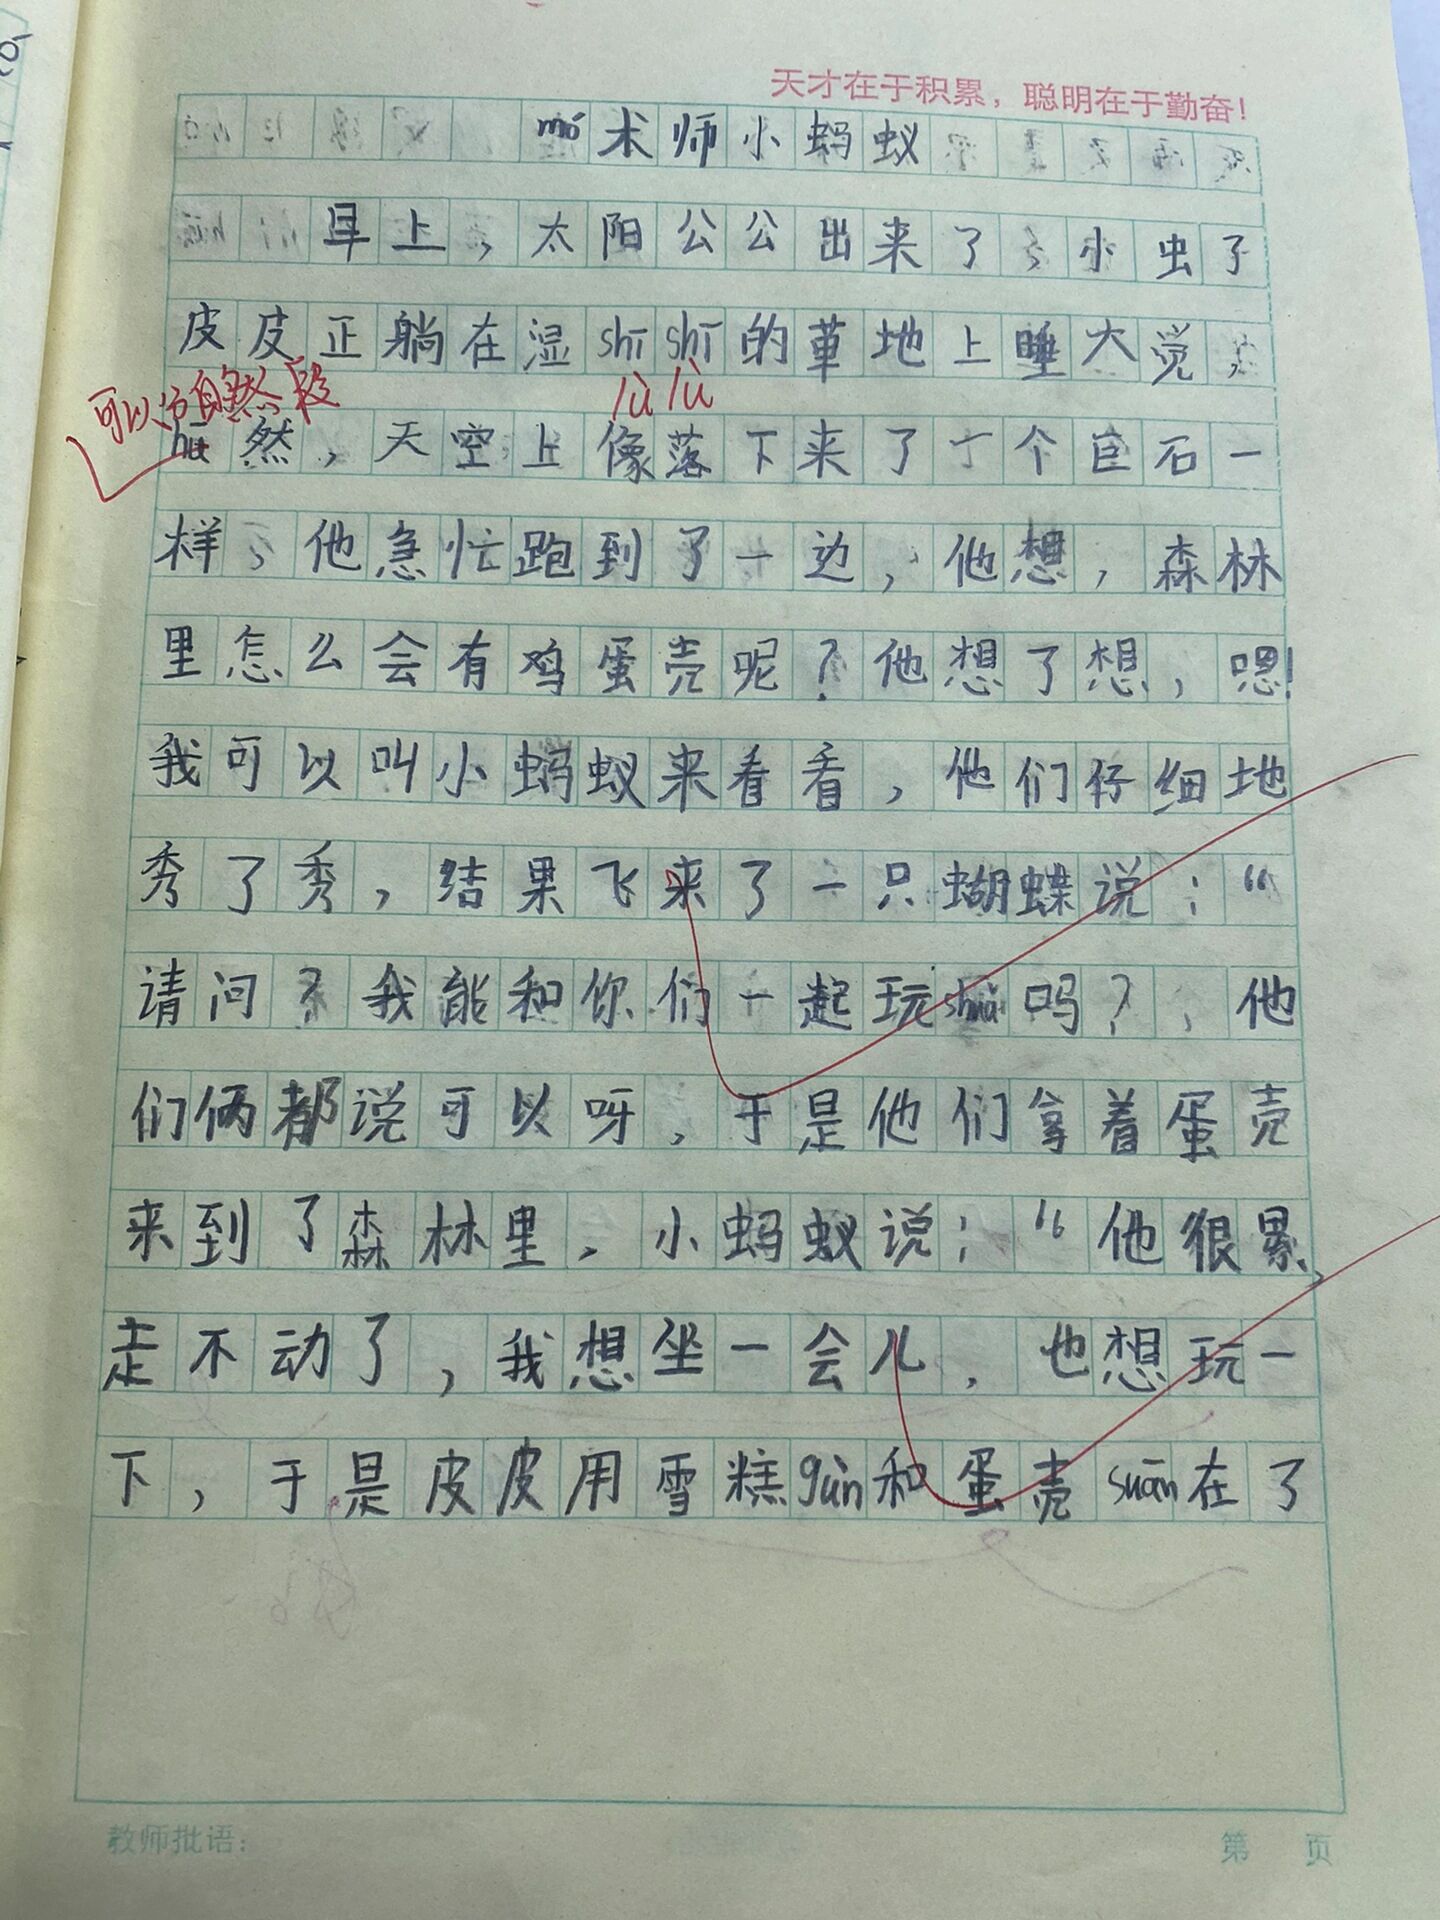 天才在于积累，聪明在于勤奋！
mó术师小蚂蚁
早上，太阳公公出来了，小虫子
皮皮正躺在湿shīshī的草地上睡大觉，
lùlù
可以分自然段
hū然，天空上像落下来了一个巨石一
样，他急忙跑到了一边，他想，森林
里怎么会有鸡蛋壳呢？他想了想，嗯！
我可以叫小蚂蚁来看看，他们仔细地
秀了秀，结果飞来了一只蝴蝶说：“
请问？我能和你们一起玩shuǎ吗？，他
们俩都说可以呀，于是他们拿着蛋壳
来到了森林里，小蚂蚁说：“他很累，
走不动了，我想坐一会儿，也想玩一
下，于是皮皮用雪糕gùn和蛋壳suān在了
教师批语：
第 页